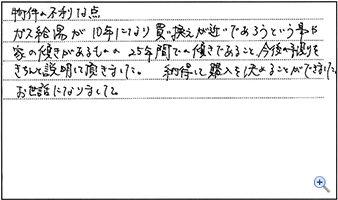 物件の不利な点
ガス給湯が10年になり買い換えが近いであろうという事や
家の傾きがあるものの25年間での傾きであること、今後の予測を
きちんと説明して頂きました。 納得して購入を決めることができました。
お世話になりました。